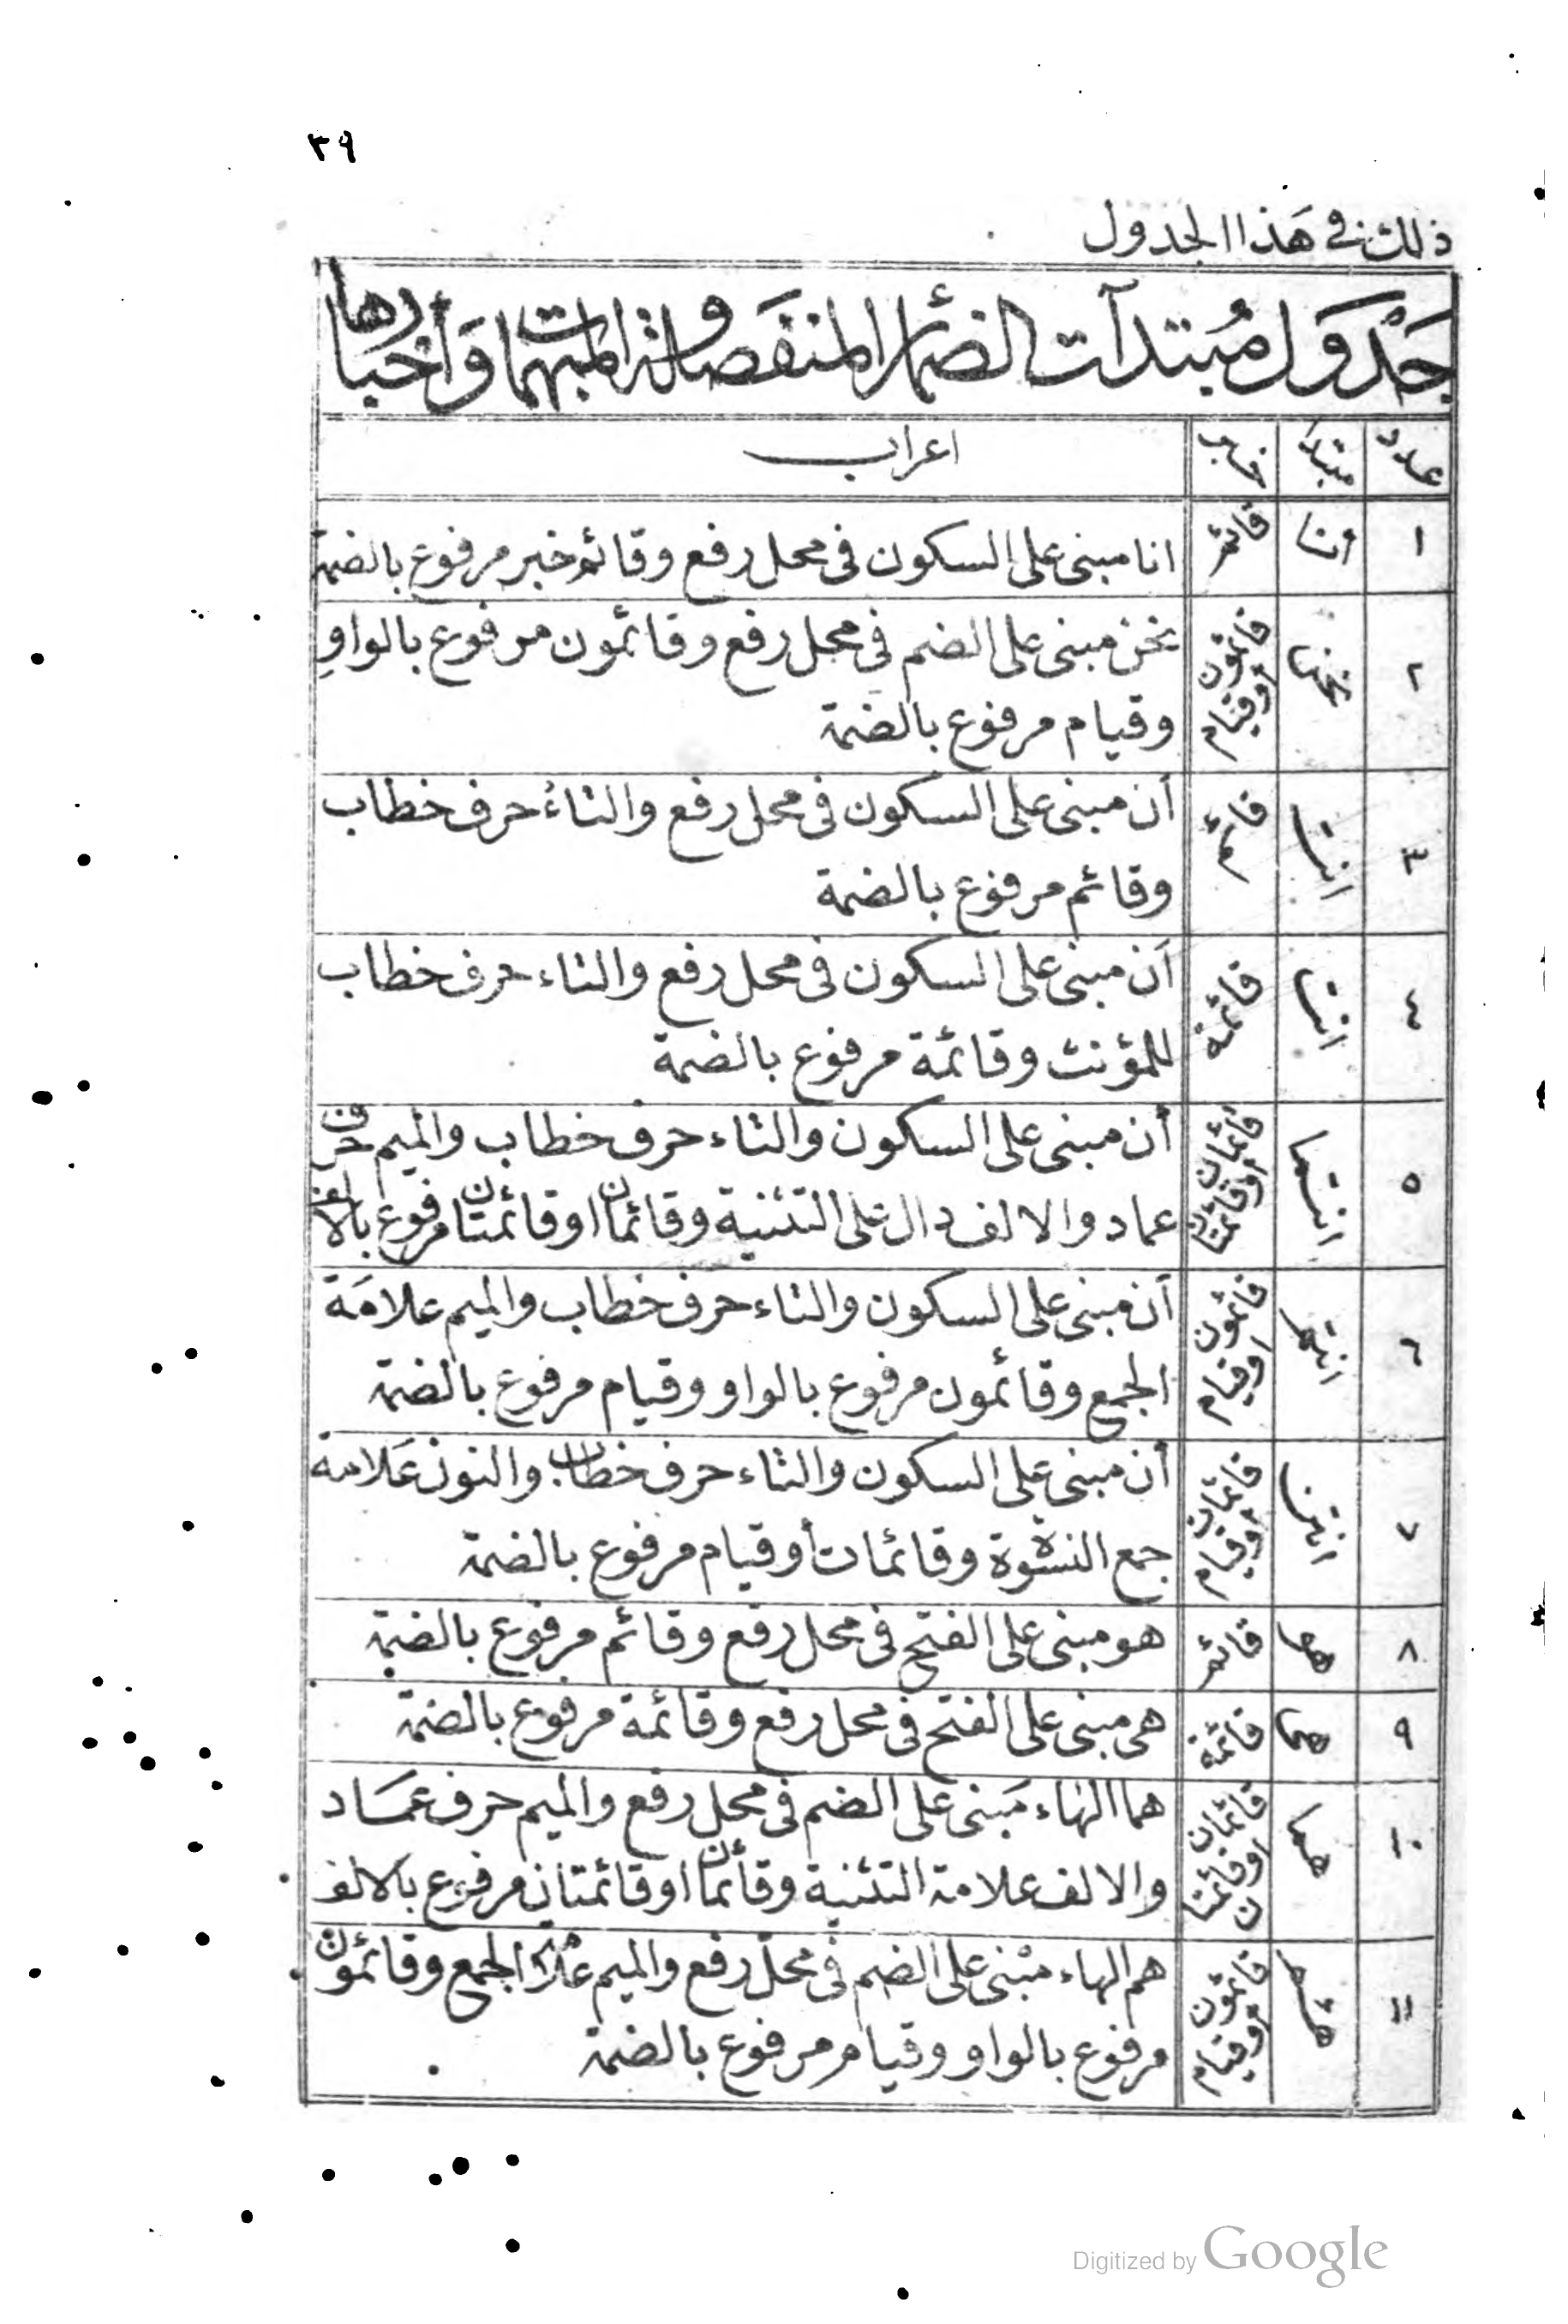 ٣٩
ذلك في هَذا الجدول
جَدْوَل مُبتدآت الضمائر المنفَصلة والمبهمات وَأخبارها
عدد مبتدأ خبر اعراب
١ أنا قائم انا مبنى على السكون فى محل رفع وقائم خبر مرفوع بالضمة
٢ نحن قائمون أو قيام نحن مبنى على الضم فى محل رفع وقائمون مرفوع بالواو
وقيام مرفوع بالضمة
٣ انت قائم أن مبنى على السكون فى محل رفع والتاء حرف خطاب
وقائم مرفوع بالضمة
٤ انت قائمة أن مبنى على السكون فى محل رفع والتاء حرف خطاب
للمؤنث وقائمة مرفوع بالضمة
٥ انتما قائمان أو قائمتان أن مبنى على السكون والتاء حرف خطاب والميم حرف
عماد والالف دال على التثنية وقائمان او قائمتان مرفوع بالالف
٦ انتم قائمون او قيام أن مبنى على السكون والتاء حرف خطاب والميم علامَة
الجمع وقائمون مرفوع بالواو وقيام مرفوع بالضمة
٧ انتن قائمات أو قيام أن مبنى على السكون والتاء حرف خطاب والنون عَلامة
جمع النشوة وقائمات أو قيام مرفوع بالضمة
٨ هو قائم هو مبنى على الفتح فى محل رفع وقائم مرفوع بالضمة
٩ هى قائمة هى مبنى على الفتح فى محل رفع وقائمة مرفوع بالضمة
١٠ هما قائمان او قائمتان هما الهاء مَبنى على الضم فى محل رفع والميم حرف عمَاد
والالف علامة التثنية وقائمان او قائمتان مرفوع بالالف
١١ هم قائمون أو قيام هم الهاء مبْنى على الضم فى محل رفع والميم علامة الجمع وقائمون
مرفوع بالواو وقيام مرفوع بالضمة
Digitized by Google